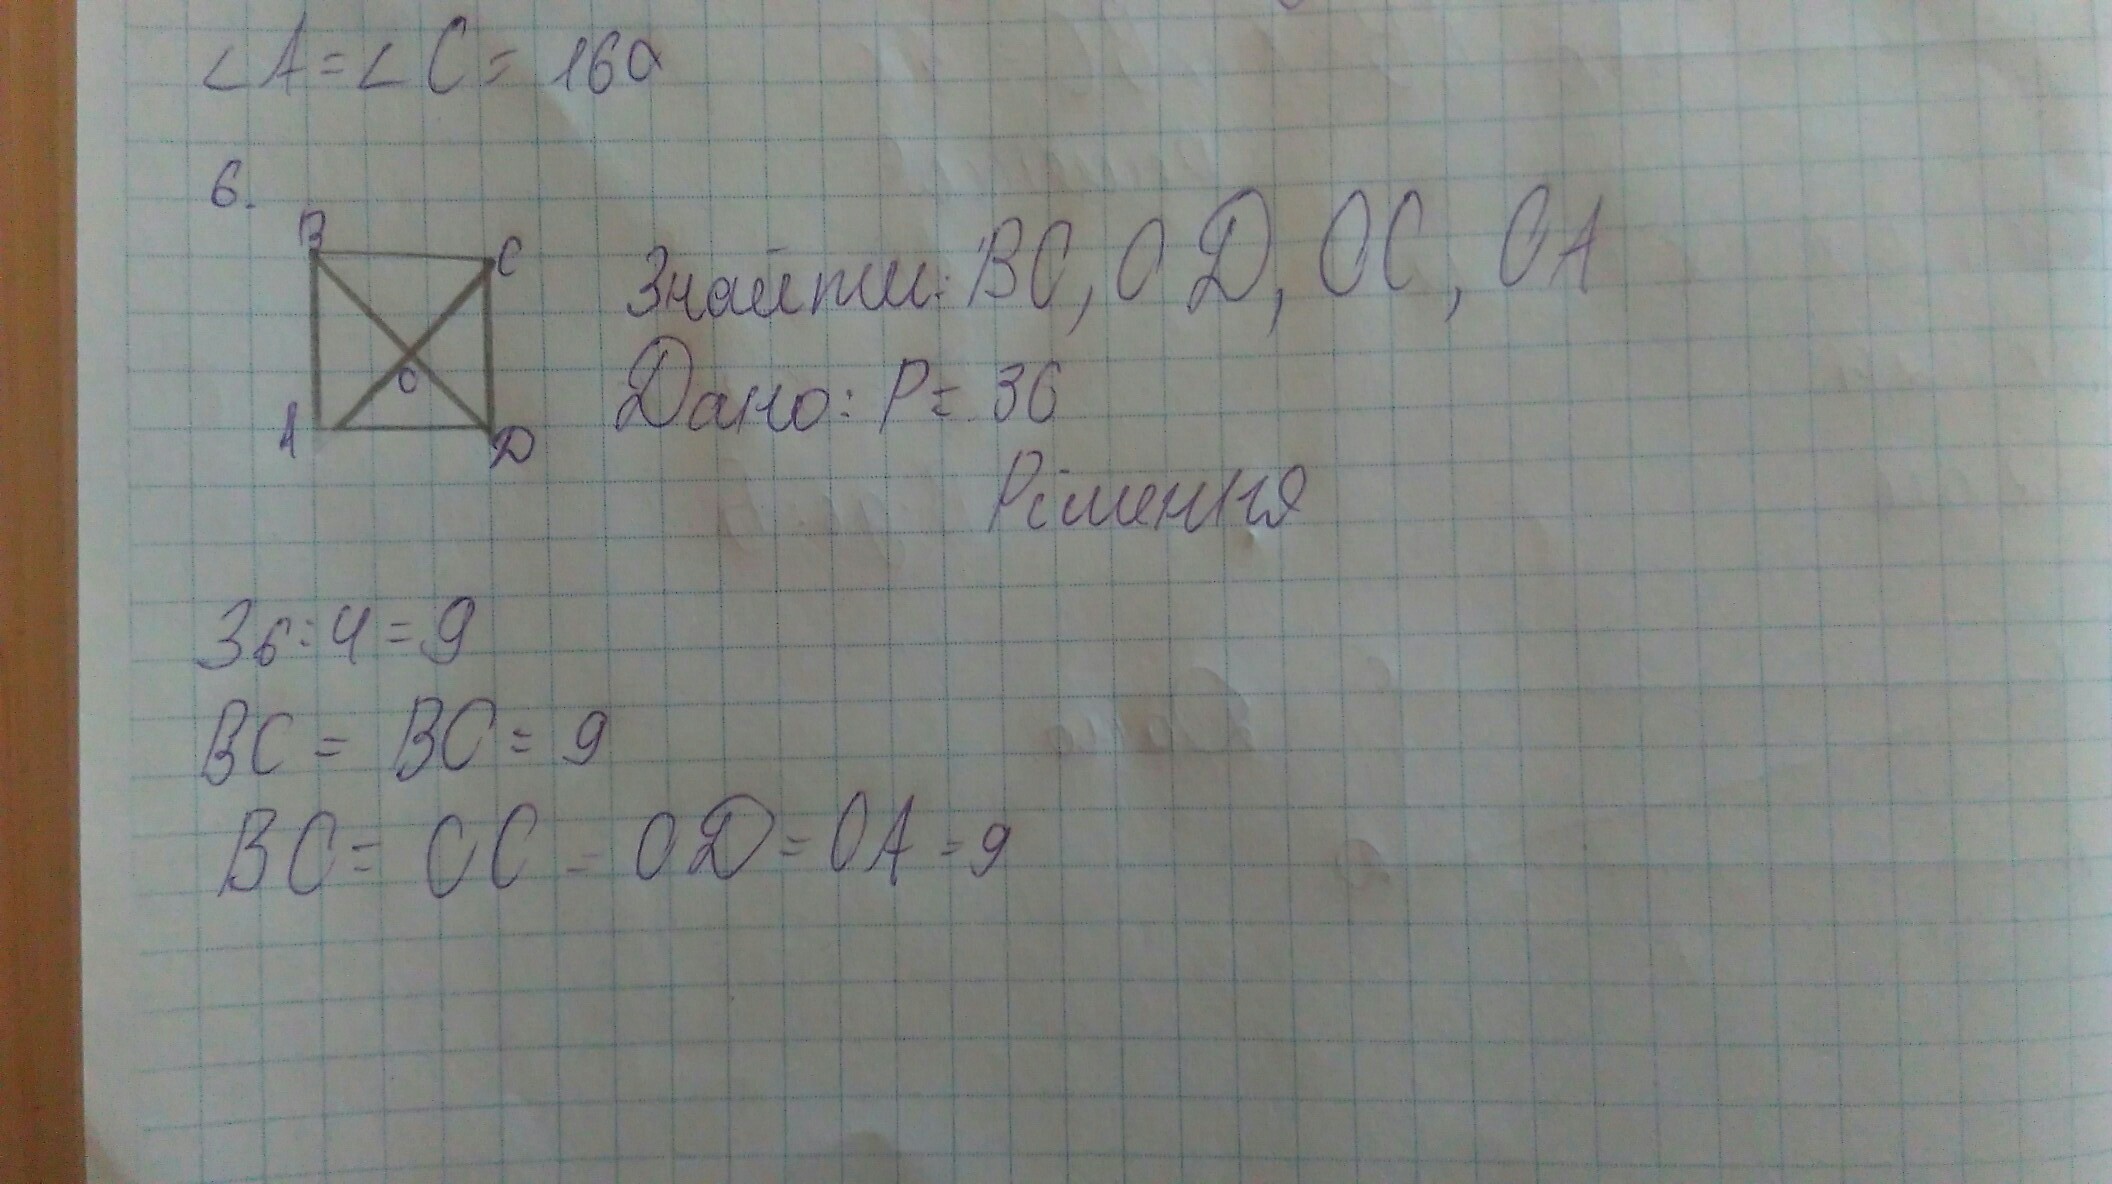 ∠A=∠C= 160
6.
B
C
Знайти: BC, OD, OC, OA
O
Дано: P= 36
A
D
Рішення
36:4=9
BC= BC= 9
BC= OC = OD=OA=9